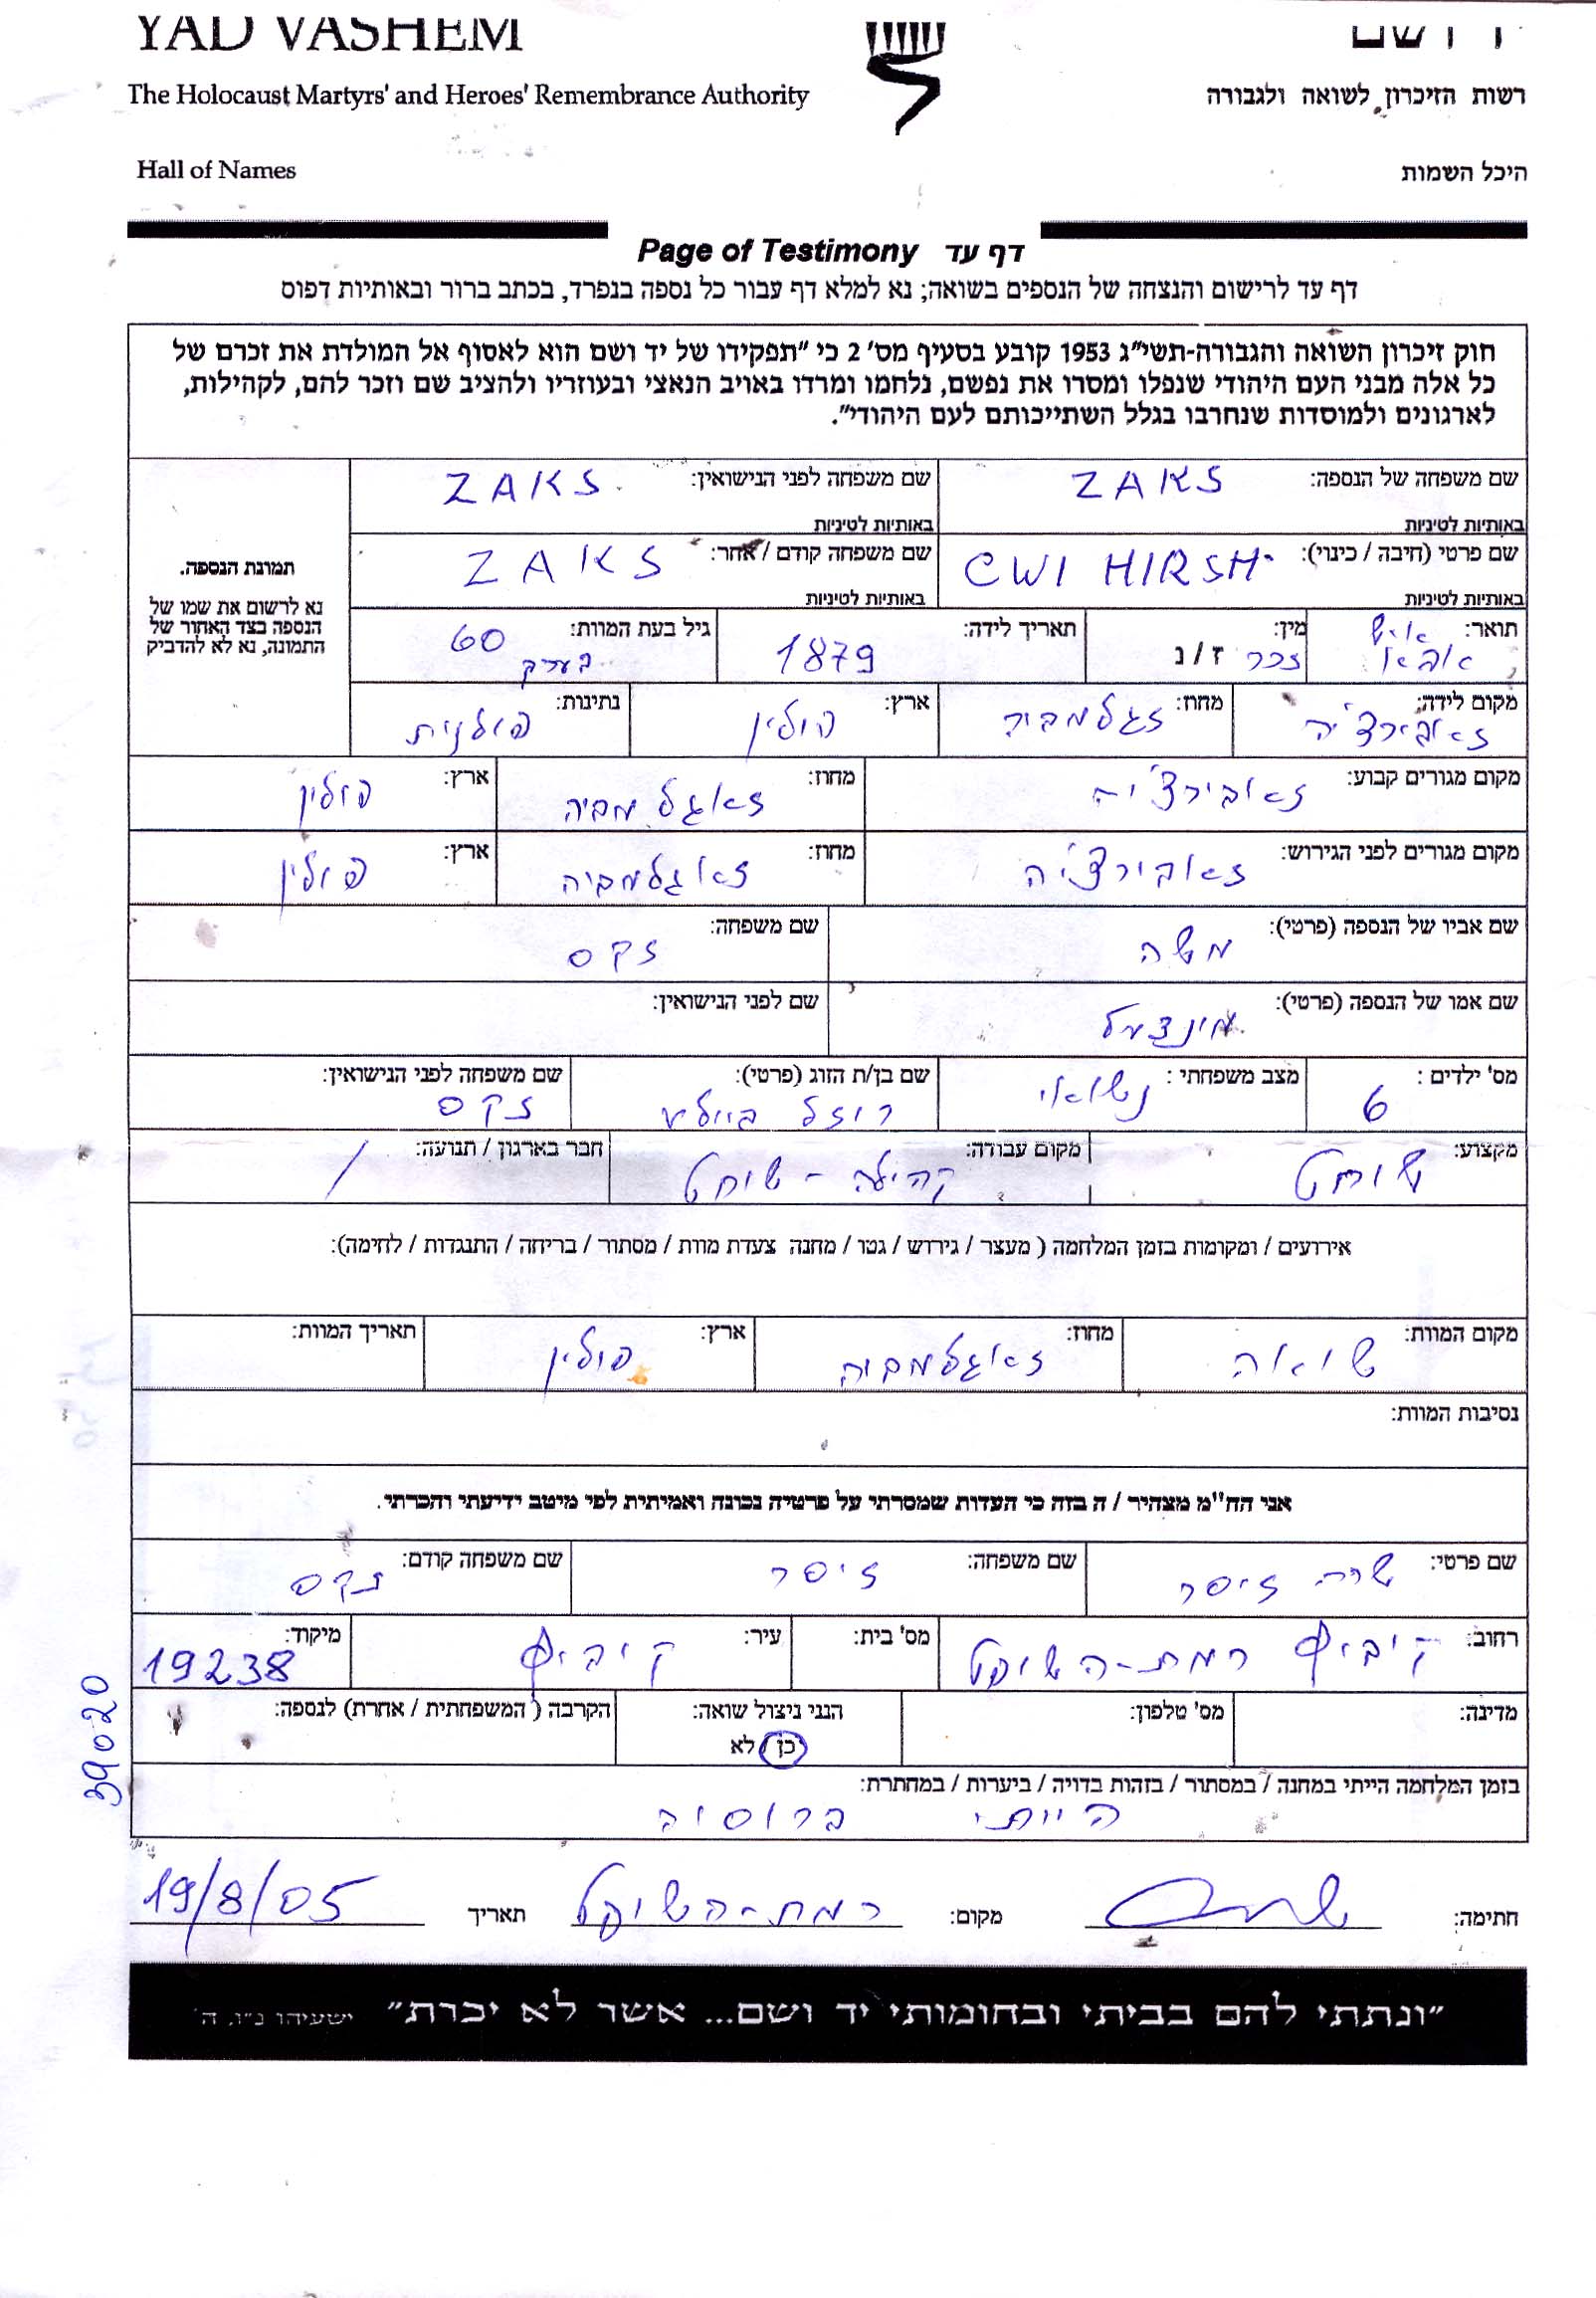 YAD VASHEM
The Holocaust Martyrs' and Heroes' Remembrance Authority
רשות הזיכרון לשואה ולגבורה
Hall of Names
היכל השמות
Page of Testimony דף עד
דף עד לרישום והנצחה של הנספים בשואה; נא למלא דף עבור כל נספה בנפרד, בכתב ברור ובאותיות דפוס
חוק זיכרון השואה והגבורה-תשי״ג 1953 קובע בסעיף מס׳ 2 כי ״תפקידו של יד ושם הוא לאסוף אל המולדת את זכרם של
כל אלה מבני העם היהודי שנפלו ומסרו את נפשם, נלחמו ומרדו באויב הנאצי ובעוזריו ולהציב שם וזכר להם, לקהילות,
לארגונים ולמוסדות שנחרבו בגלל השתייכותם לעם היהודי״.
שם משפחה של הנספה: ZAKS שם משפחה לפני הנישואין: ZAKS
באותיות לטיניות באותיות לטיניות
שם פרטי (חיבה / כינוי): CWI HIRSH שם משפחה קודם / אחר: ZAKS
באותיות לטיניות באותיות לטיניות
תמונת הנספה.
נא לרשום את שמו של
הנספה בצד האחור של
התמונה, נא לא להדביק
תואר: מין: ז / נ זכר תאריך לידה: 1879 גיל בעת המוות: 60 בערך
מקום לידה: זאוביירצ'יה מחוז: זגלמביה ארץ: פולין נתינות: פולנית
מקום מגורים קבוע: זאוביירצ'יה מחוז: זאגלמביה ארץ: פולין
מקום מגורים לפני הגירוש: זאוביירצ'יה מחוז: זאגלמביה ארץ: פולין
שם אביו של הנספה (פרטי): משה שם משפחה: זקס
שם אמו של הנספה (פרטי): שם לפני הנישואין:
מס' ילדים : 6 מצב משפחתי : נשואי שם בן/ת הזוג (פרטי): רוזל ביילע שם משפחה לפני הנישואין: זקס
מקצוע: שוחט מקום עבודה: קהילה - שוחט חבר בארגון / תנועה: /
אירועים / ומקומות בזמן המלחמה ( מעצר / גירוש / גטו / מחנה צעדת מוות / מסתור / בריחה / התנגדות / לחימה):
מקום המוות: שואה מחוז: זאגלמביה ארץ: פולין תאריך המוות:
נסיבות המוות:
אני הח"מ מצהיר / ה בזה כי העדות שמסרתי על פרטיה נכונה ואמיתית לפי מיטב ידיעתי והכרתי.
שם פרטי: שרה זיסר שם משפחה: זיסר שם משפחה קודם: זקס
רחוב: קיבוץ רמת-השופט מס' בית: עיר: קיבוץ מיקוד: 19238
מדינה: מס' טלפון: הנני ניצול שואה: כן / לא הקרבה ( המשפחתית / אחרת) לנספה:
39020
בזמן המלחמה הייתי במחנה / במסתור / בזהות בדויה / ביערות / במחתרת:
הייתי ברוסיה
חתימה: מקום: רמת-השופט תאריך 19/8/05
״ונתתי להם בביתי ובחומותי יד ושם... אשר לא יכרת״ ישעיהו נ״ו, ה'